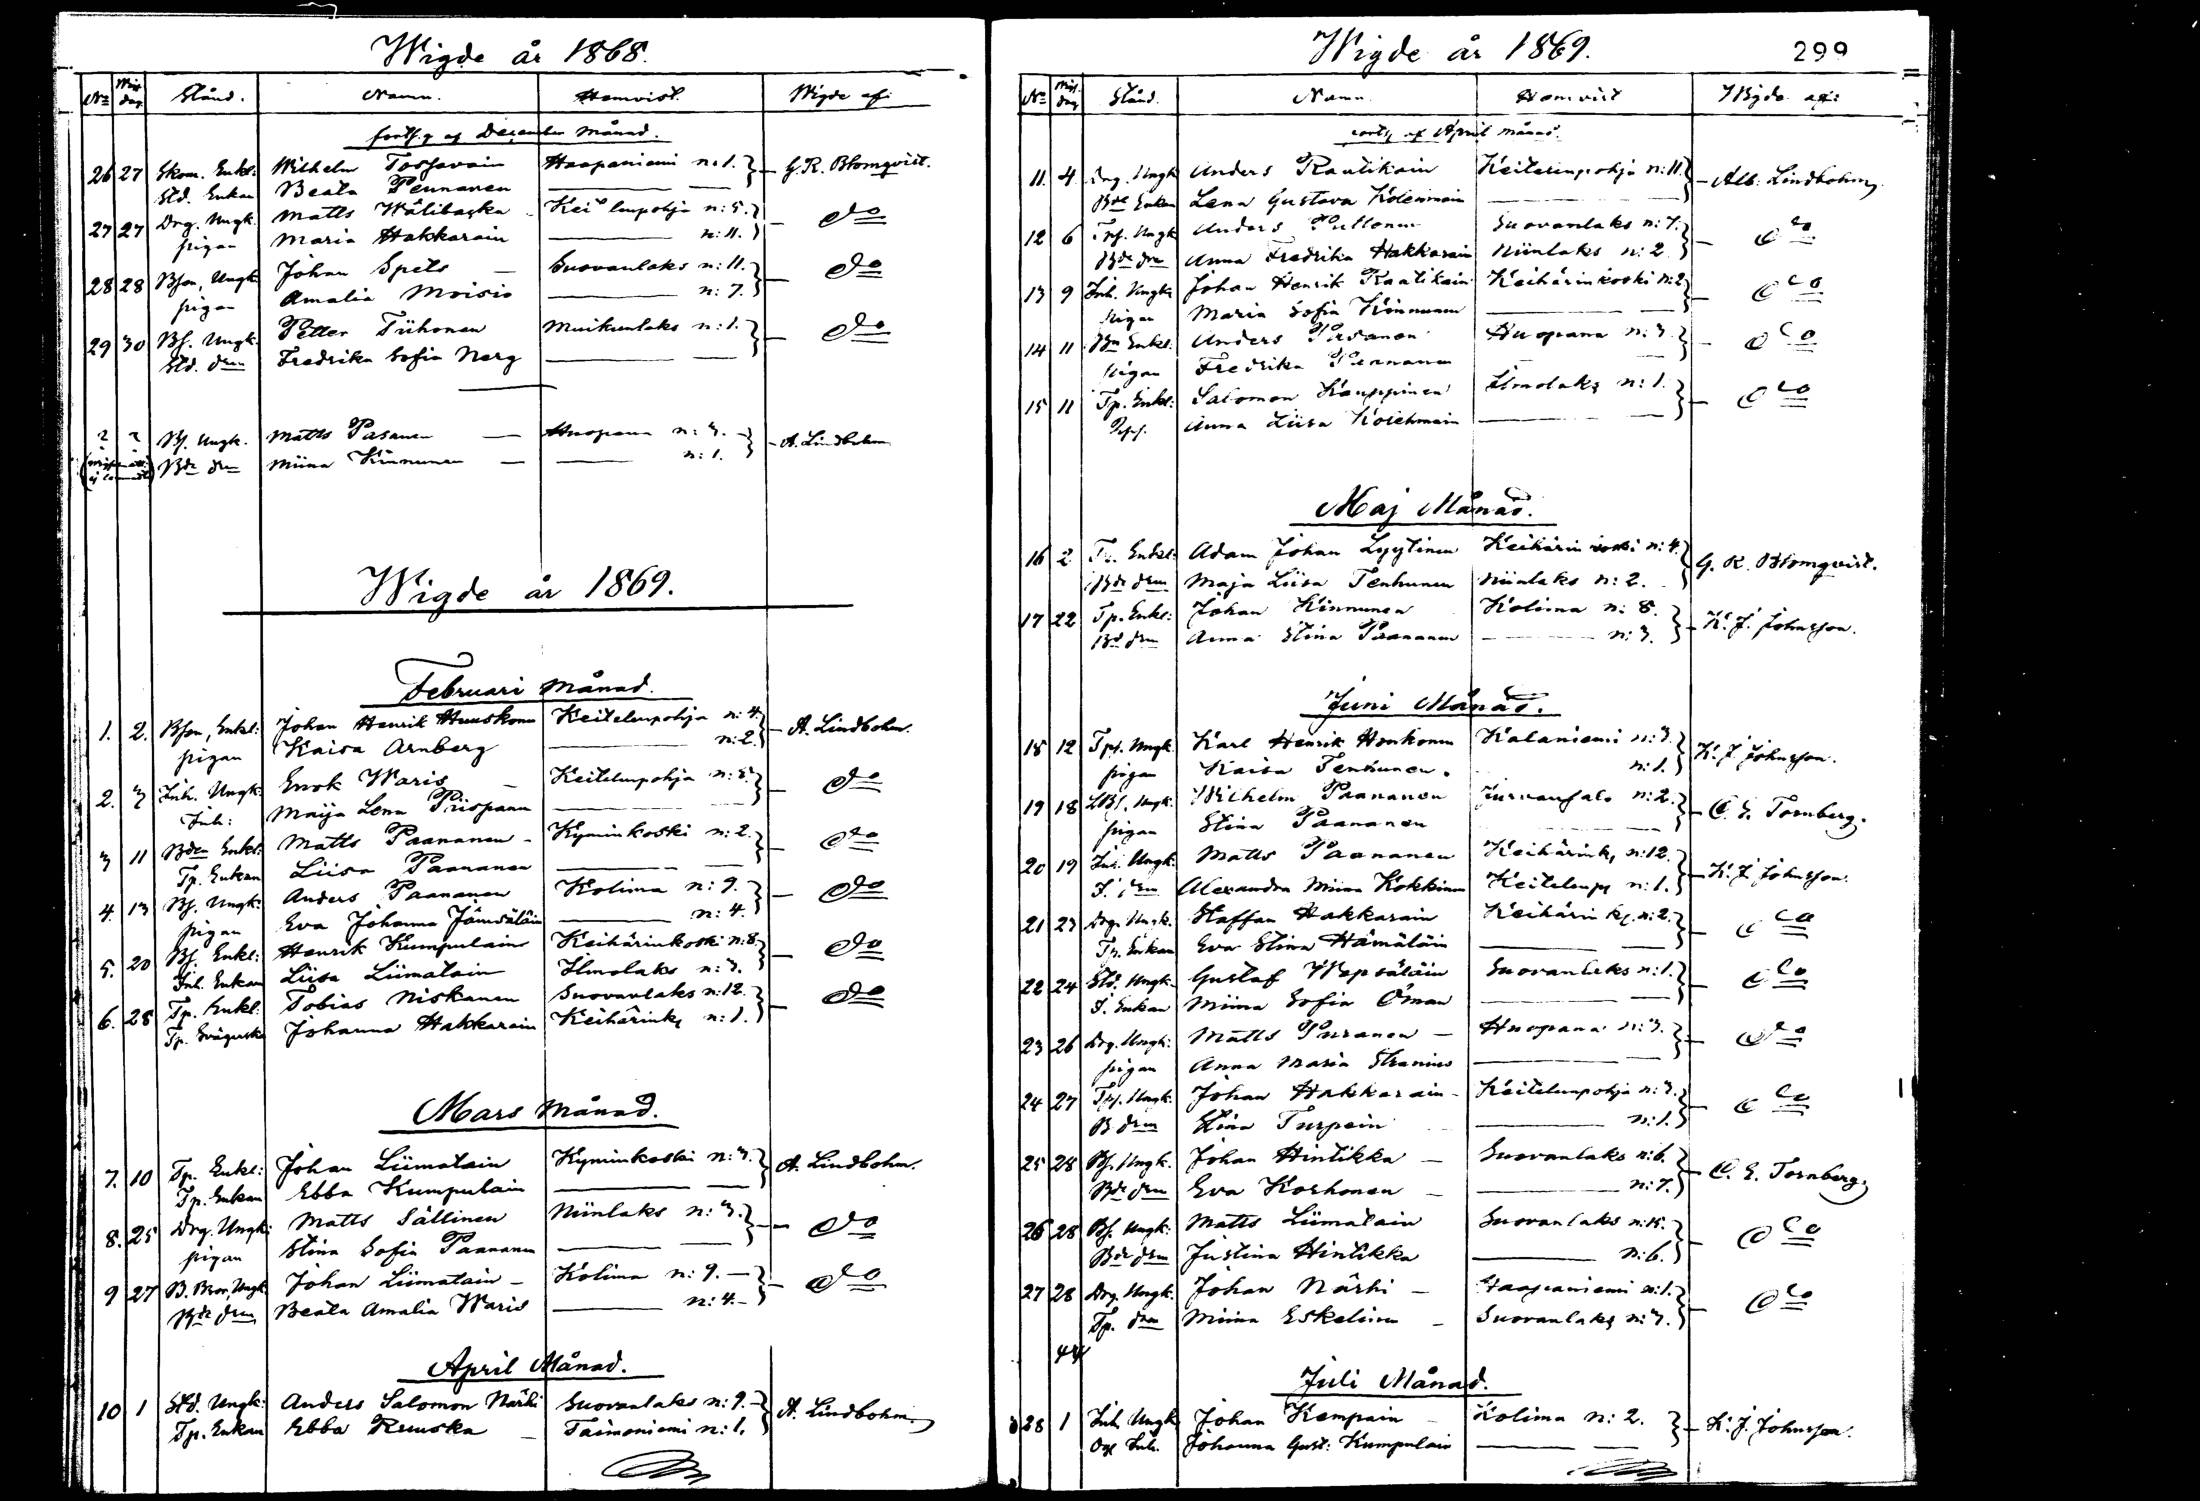 Wigde år 1868.
No Wig. dag Stånd. Namn. Hemvist. Wigde af:
forts. af December månad.
26 27 Skom. Enkl: Wilhelm Tossavain Haapaniemi n:1. G. R. Blomqvist.
Std. Enkan Beata Pennanen
27 27 Drg. Ungk. Matts Wälibacka n:5. do
pigan Maria Hakkarain n:11.
28 28 Bson, Ungk: Johan Spets Suovanlaks n:11. do
pigan Amalia Moisio n:7.
29 30 Bs. Ungk. Petter Tiihonen Muikunlaks n:1. do
Std. drn Fredrika Sofia Nerg
? ? Bs. Ungk. Matts Pasanen Huopana n:3. A. Lindbohm
Bde drn Miina Kinnunen n:1.
Wigde år 1869.
Februari månad.
1. 2. Bson, Enkl: Johan Henrik Huuskonen Keitelenpohja n:4. A. Lindbohm.
pigan Kaisa Arnberg n:2.
2. 3 Inh. Ungk: Enok Waris Keitelenpohja n:5. do
Inh: Maija Lena Piispanen
3 11 Bden Enkl: Matts Paananen Kyminkoski n:2. do
Tp. Enkan Liisa Paananen
4. 13 Bs. Ungk: Anders Paananen Kolima n:9. do
pigan Eva Johanna Jämsäläin n:4.
5. 20 Bs. Enkl: Henrik Kumpulain Keihärinkoski n:8. do
Inh. Enkan Liisa Liimatain Ilmolaks n:3.
6. 28 Tp. Enkl. Tobias Niskanen Suovanlaks n:12. do
Tp. Johanna Hakkarain Keihärink, n:1.
Mars månad.
7. 10 Tp. Enkl: Johan Liimatain Kyminkoski n:3. A. Lindbohm.
Tp. Enkan Ebba Kumpulain
8. 25 Drg. Ungk: Matts Sällinen Niinlaks n:3. do
pigan Stina Sofia Paananen
9 27 B. Bror, Ungk. Johan Liimatain Kolima n:9. do
Bde drn Beata Amalia Waris n:4.
April Månad.
10 1 Std. Ungk: Anders Salomon Närhi Suovanlaks n:9. A. Lindbohm.
Tp. Enkan Ebba Ruuska Taimoniemi n:1.
Wigde år 1869. 299
No Wig. dag Stånd. Namn Hemvist Wigde af:
forts. af April månad.
11. 4 Drg. Ungk Anders Rautikain Keitelenpohja n:11. Alb. Lindbohm
Bde Enkan Lena Gustava Kolehmain
12 6 Ungk Anders Puttonen Suovanlaks n:7. do
Bde drn Anna Fredrika Hakkarain Niinlaks n:2
13 9 Inh. Ungk Johan Henrik Raatikain Keihärinkoski n:2 do
pigan Maria Sofia Kinnunen
14 11 Bn Enkl: Anders Pasanen Huopana n:3. do
pigan Fredrika Paananen
15 11 Tp. Enkl: Salomon Kauppinen Ilmolaks n:1. do
Anna Liisa Kolehmain
Maj Månad.
16 2 Enkl: Adam Johan Lyytinen Keihärinkoski n:4. G. R. Blomqvist.
Bde drn Maja Liisa Tenhunen Niinlaks n:2.
17 22 Tp. Enkl: Johan Kinnunen Kolima n:8. K. J. Johnsson.
Bd drn Anna Stina Paananen n:3.
Juni Månad.
18 12 Tps. Ungk. Karl Henrik Honkonen Kalaniemi n:3. K. J. Johnsson.
pigan Kaisa Tenhunen. n:1.
19 18 Ungk: Wilhelm Paananen n:2. C. E. Tornberg.
pigan Stina Paananen
20 19 Inh. Ungk. Matts Paananen Keihärink, n:12. K. J. Johnsson.
drn Alexandra Miina Kokkinen Keitelenp, n:1.
21 23 Drg. Ungk. Staffan Hakkarain Keihärink, n:2. do
Tp. Enkan Eva Stina Hämäläin
22 24 Std. Ungk. Gustaf Wepsäläin Suovanlaks n:1. do
Enkan Miina Sofia Öman
23 26 Drg. Ungk: Matts Puranen Huopana n:3. do
pigan Anna Maria Stranius
24 27 Tps. Ungk. Johan Hakkarain Keitelenpohja n:3. do
B drn Stina Turpein n:1.
25 28 Bs. Ungk. Johan Hintikka Suovanlaks n:6. C. E. Tornberg.
Bde drn Eva Korhonen n:7.
26 28 Bs. Ungk: Matts Liimatain Suovanlaks n:15. do
Bde drn Justina Hintikka n:6.
27 28 Drg. Ungk: Johan Närhi Haapaniemi n:1. do
Tp. drn Miina Eskelinen Suovanlaks n:3.
44
Juli Månad.
28 1 Inh Ungk Johan Kempain Kolima n:2. K. J. Johnsson.
Inh. Johanna Gust: Kumpulain